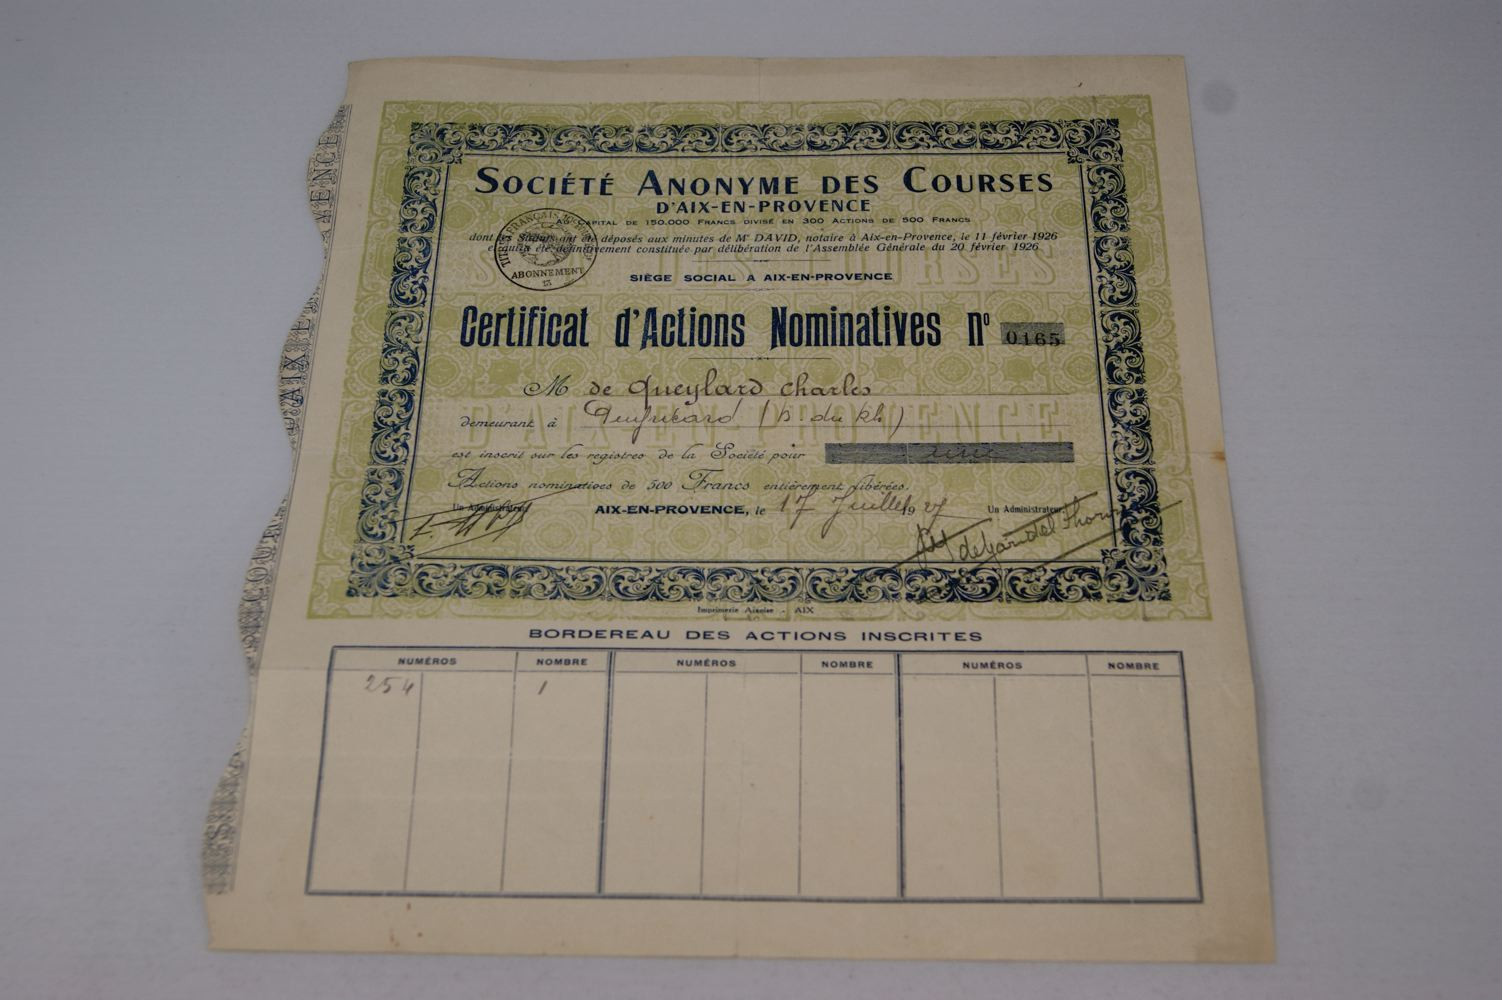 SOCIÉTÉ ANONYME DES COURSES
D'AIX-EN-PROVENCE
AU CAPITAL DE 150.000 FRANCS DIVISÉ EN 300 ACTIONS DE 500 FRANCS
dont les Statuts ont été déposés aux minutes de Me DAVID, notaire à Aix-en-Provence, le 11 février 1926
et qui a été définitivement constituée par délibération de l'Assemblée Générale du 20 février 1926
ABONNEMENT
SIÈGE SOCIAL A AIX-EN-PROVENCE
Certificat d'Actions Nominatives No 0165
M de Queylard Charles
demeurant à Puyricard (B. du Rh)
est inscrit sur les registres de la Société pour une
Actions nominatives de 500 Francs entièrement libérées.
Un Administrateur, AIX-EN-PROVENCE, le 17 Juillet 1927 Un Administrateur,
Imprimerie Aixoise - AIX
BORDEREAU DES ACTIONS INSCRITES
NUMÉROS NOMBRE NUMÉROS NOMBRE NUMÉROS NOMBRE
254 1